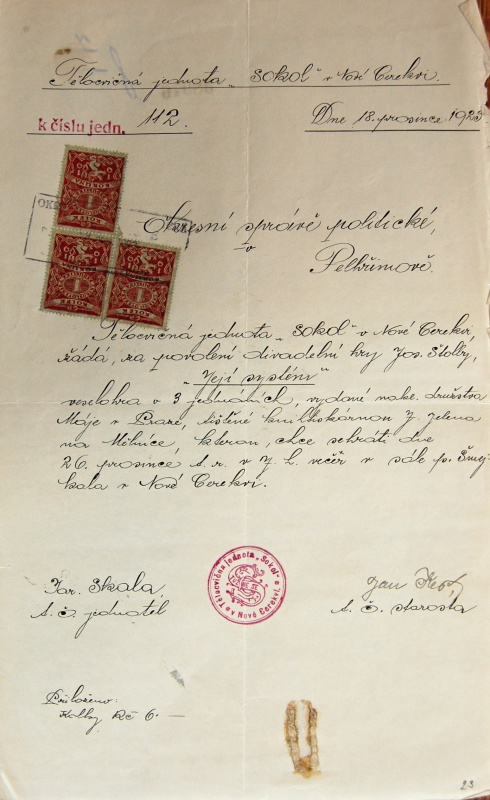 Tělocvičná jednota „SOKOL" v Nové Cerekvi.
k číslu jedn. 112.
Dne 18. prosince 1923
Okresní správě politické,
v
Pelhřimově.
Tělocvičná jednota „SOKOL" v Nové Cerekvi
žádá, za povolení divadelní hry Jos. Štolby,
„Její systém"
veselohra v 3 jednáních, vydané nakl. družstva
Máje v Praze, tištěné knihtiskárnou J. Jelena
na Mělníce, kterou, chce sehráti dne
26. prosince t. r. v 7 h. večer v sále p. Šmej-
kala v Nové Cerekvi.
Tělocvična jednota „Sokol"
v Nové Cerekvi.
Jar. Skala,
t. č. jednatel
Jan
t. č. starosta
Přiloženo:
Kolky Kč 6.—
23